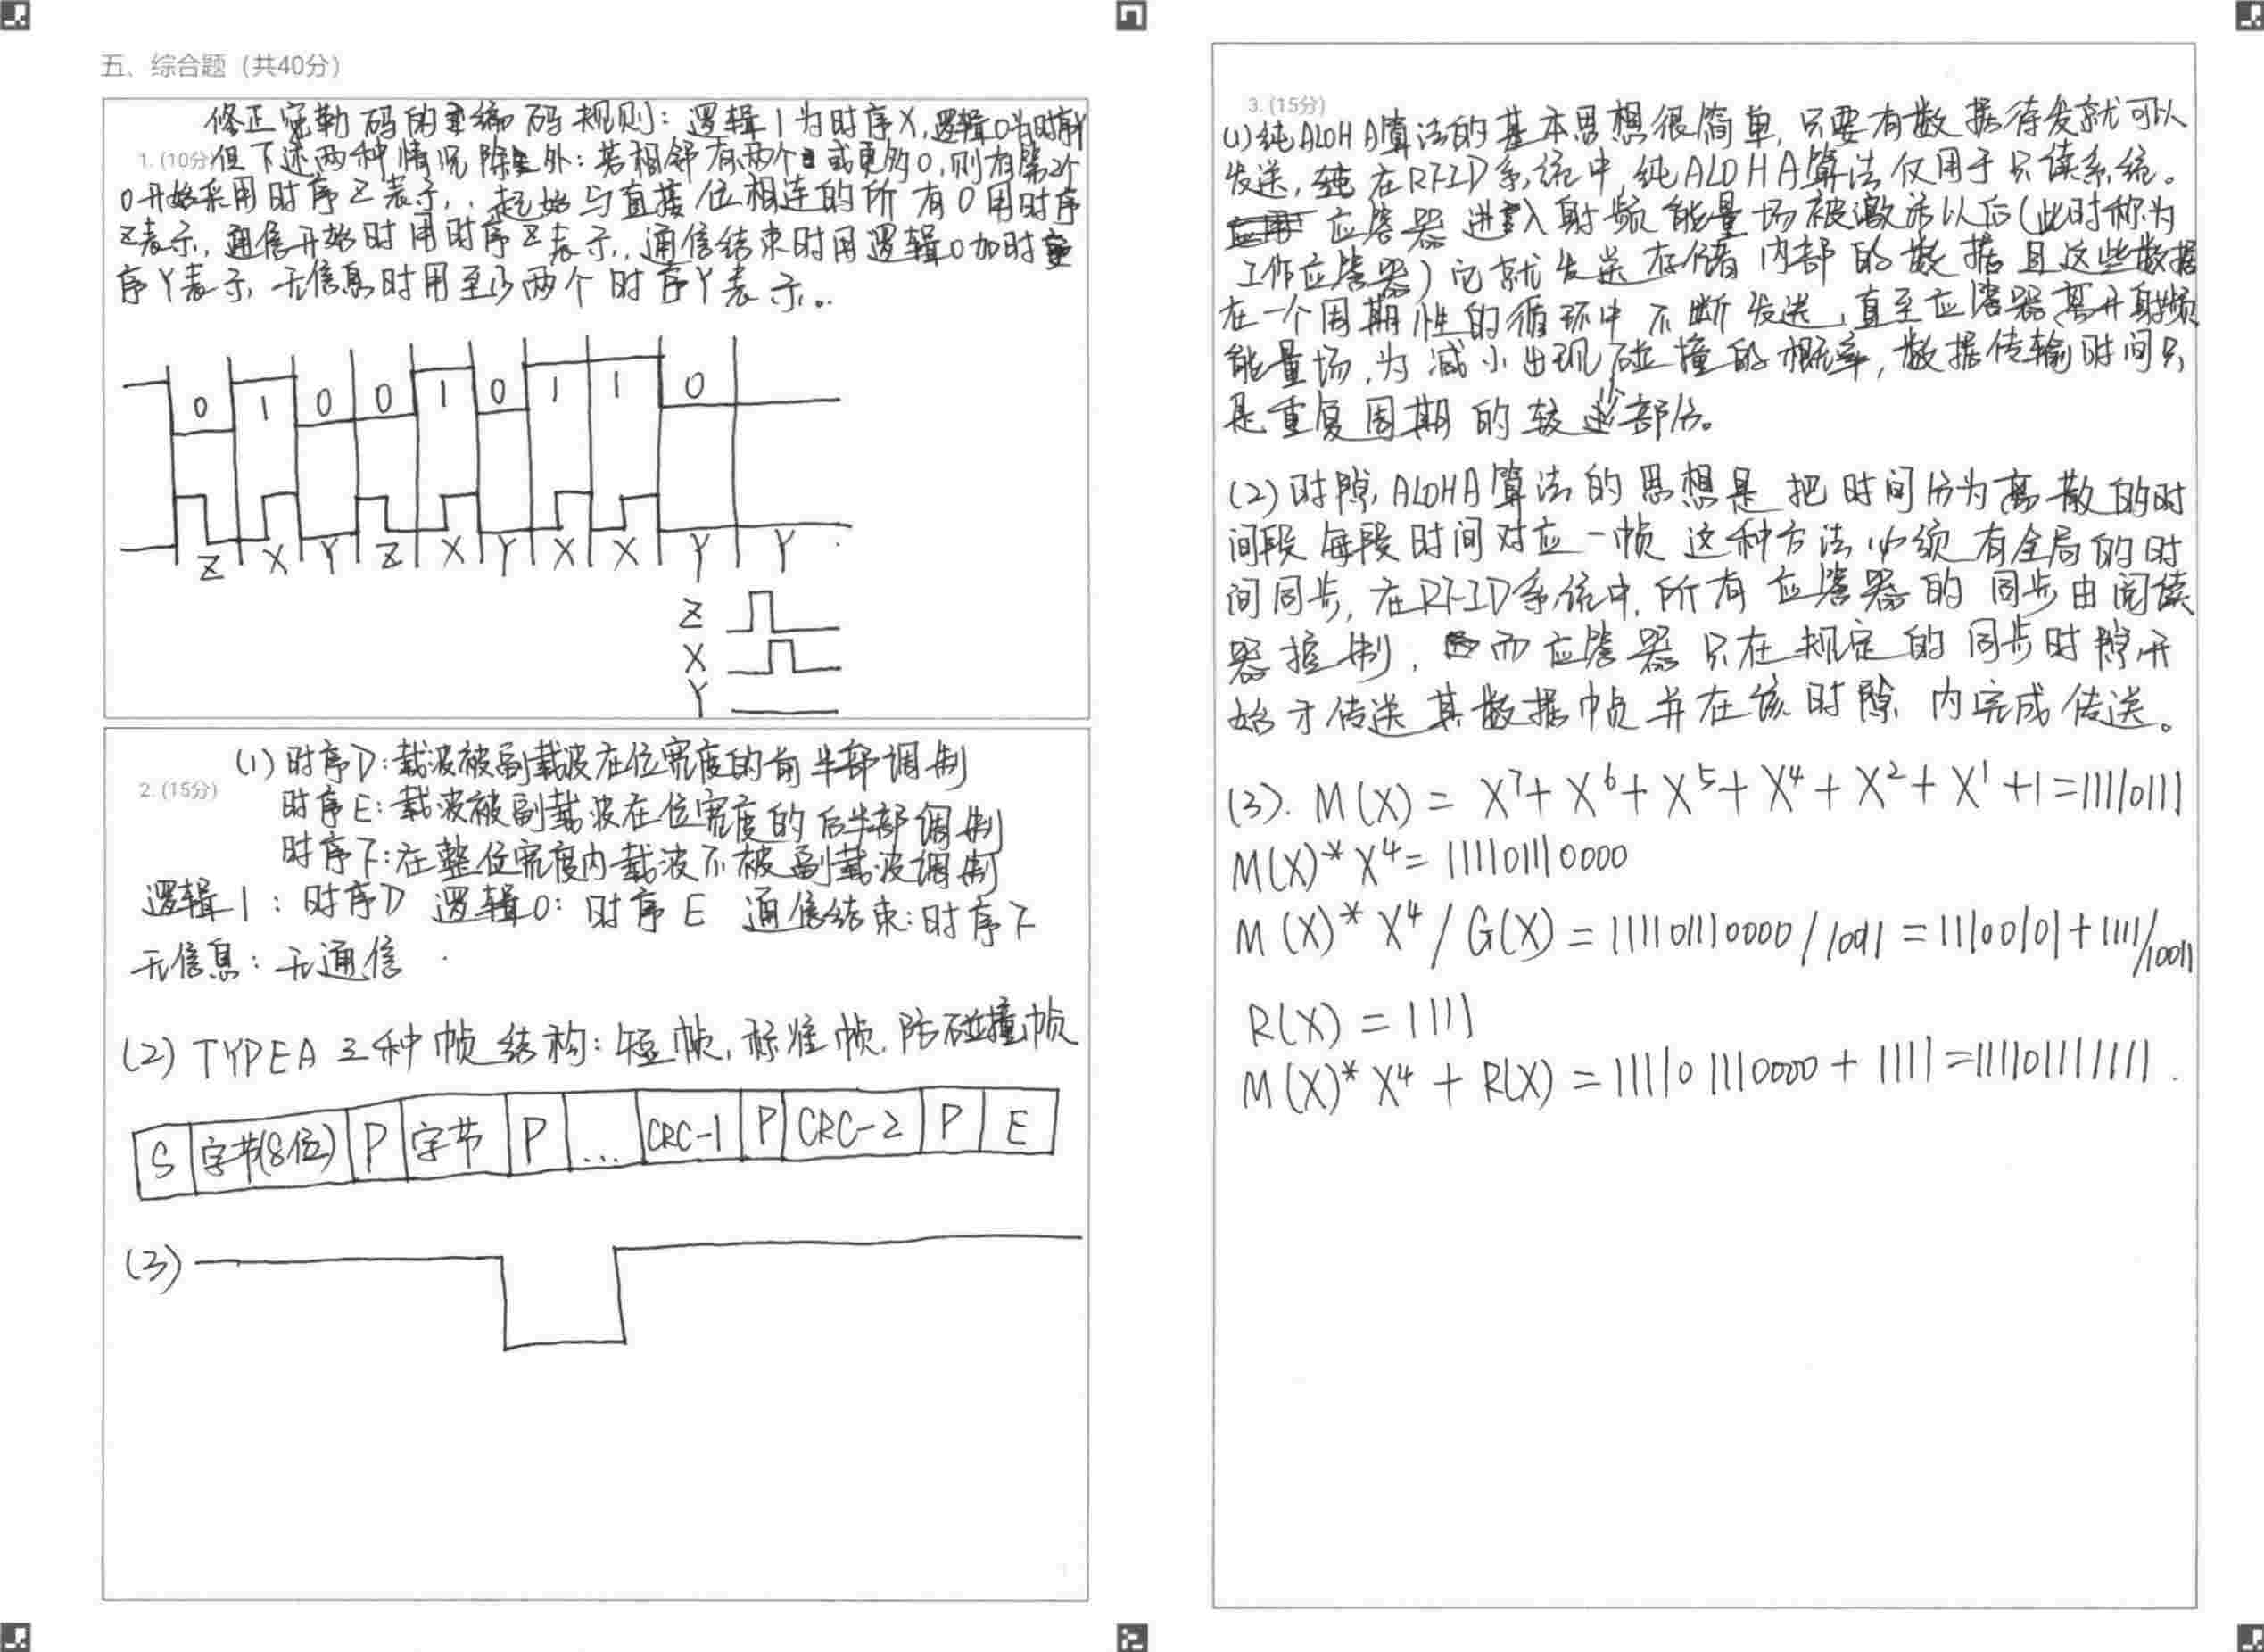 五、综合题（共40分）
修正密勒码的编码规则：逻辑1为时序X，逻辑0为时序Y
1. (10分)
但下述两种情况除外：若相邻有两个或更多0，则有第2个
0开始采用时序Z表示，起始与直接位相连的所有0用时序
Z表示，通信开始时用时序Z表示，通信结束时用逻辑0加时
序Y表示，无信息时用至少两个时序Y表示。
0 1 0 0 1 0 1 1 0
Z X Y Z X Y X X Y Y
Z
X
Y
2. (15分)
(1) 时序D：载波被副载波在位宽度的前半部调制
时序E：载波被副载波在位宽度的后半部调制
时序F：在整位宽度内载波不被副载波调制
逻辑1：时序D 逻辑0：时序E 通信结束：时序F
无信息：无通信
(2) TYPEA 三种帧结构：短帧，标准帧，防碰撞帧
S 字节(8位) P 字节 P ... CRC-1 P CRC-2 P E
(3)
3. (15分)
(1) 纯ALOHA算法的基本思想很简单，只要有数据待发就可以
发送，在RFID系统中，纯ALOHA算法仅用于只读系统。
应答器进入射频能量场被激活以后（此时称为
工作应答器）它就发送存储内部的数据且这些数据
在一个周期性的循环中不断发送，直至应答器离开射频
能量场，为减小出现碰撞的概率，数据传输时间只
是重复周期的较小部分。
(2) 时隙ALOHA算法的思想是把时间分为离散的时
间段每段时间对应一帧这种方法必须有全局的时
间同步，在RFID系统中，所有应答器的同步由阅读
器控制，而应答器只在规定的同步时隙开
始才传送其数据帧并在该时隙内完成传送。
(3). M(X) = X⁷+X⁶+X⁵+X⁴+X²+X¹+1=11110111
M(X)*X⁴=111101110000
M(X)*X⁴/G(X)=111101110000/10011=11100101+1111/10011
R(X)=1111
M(X)*X⁴+R(X)=111101110000+1111=111101111111.